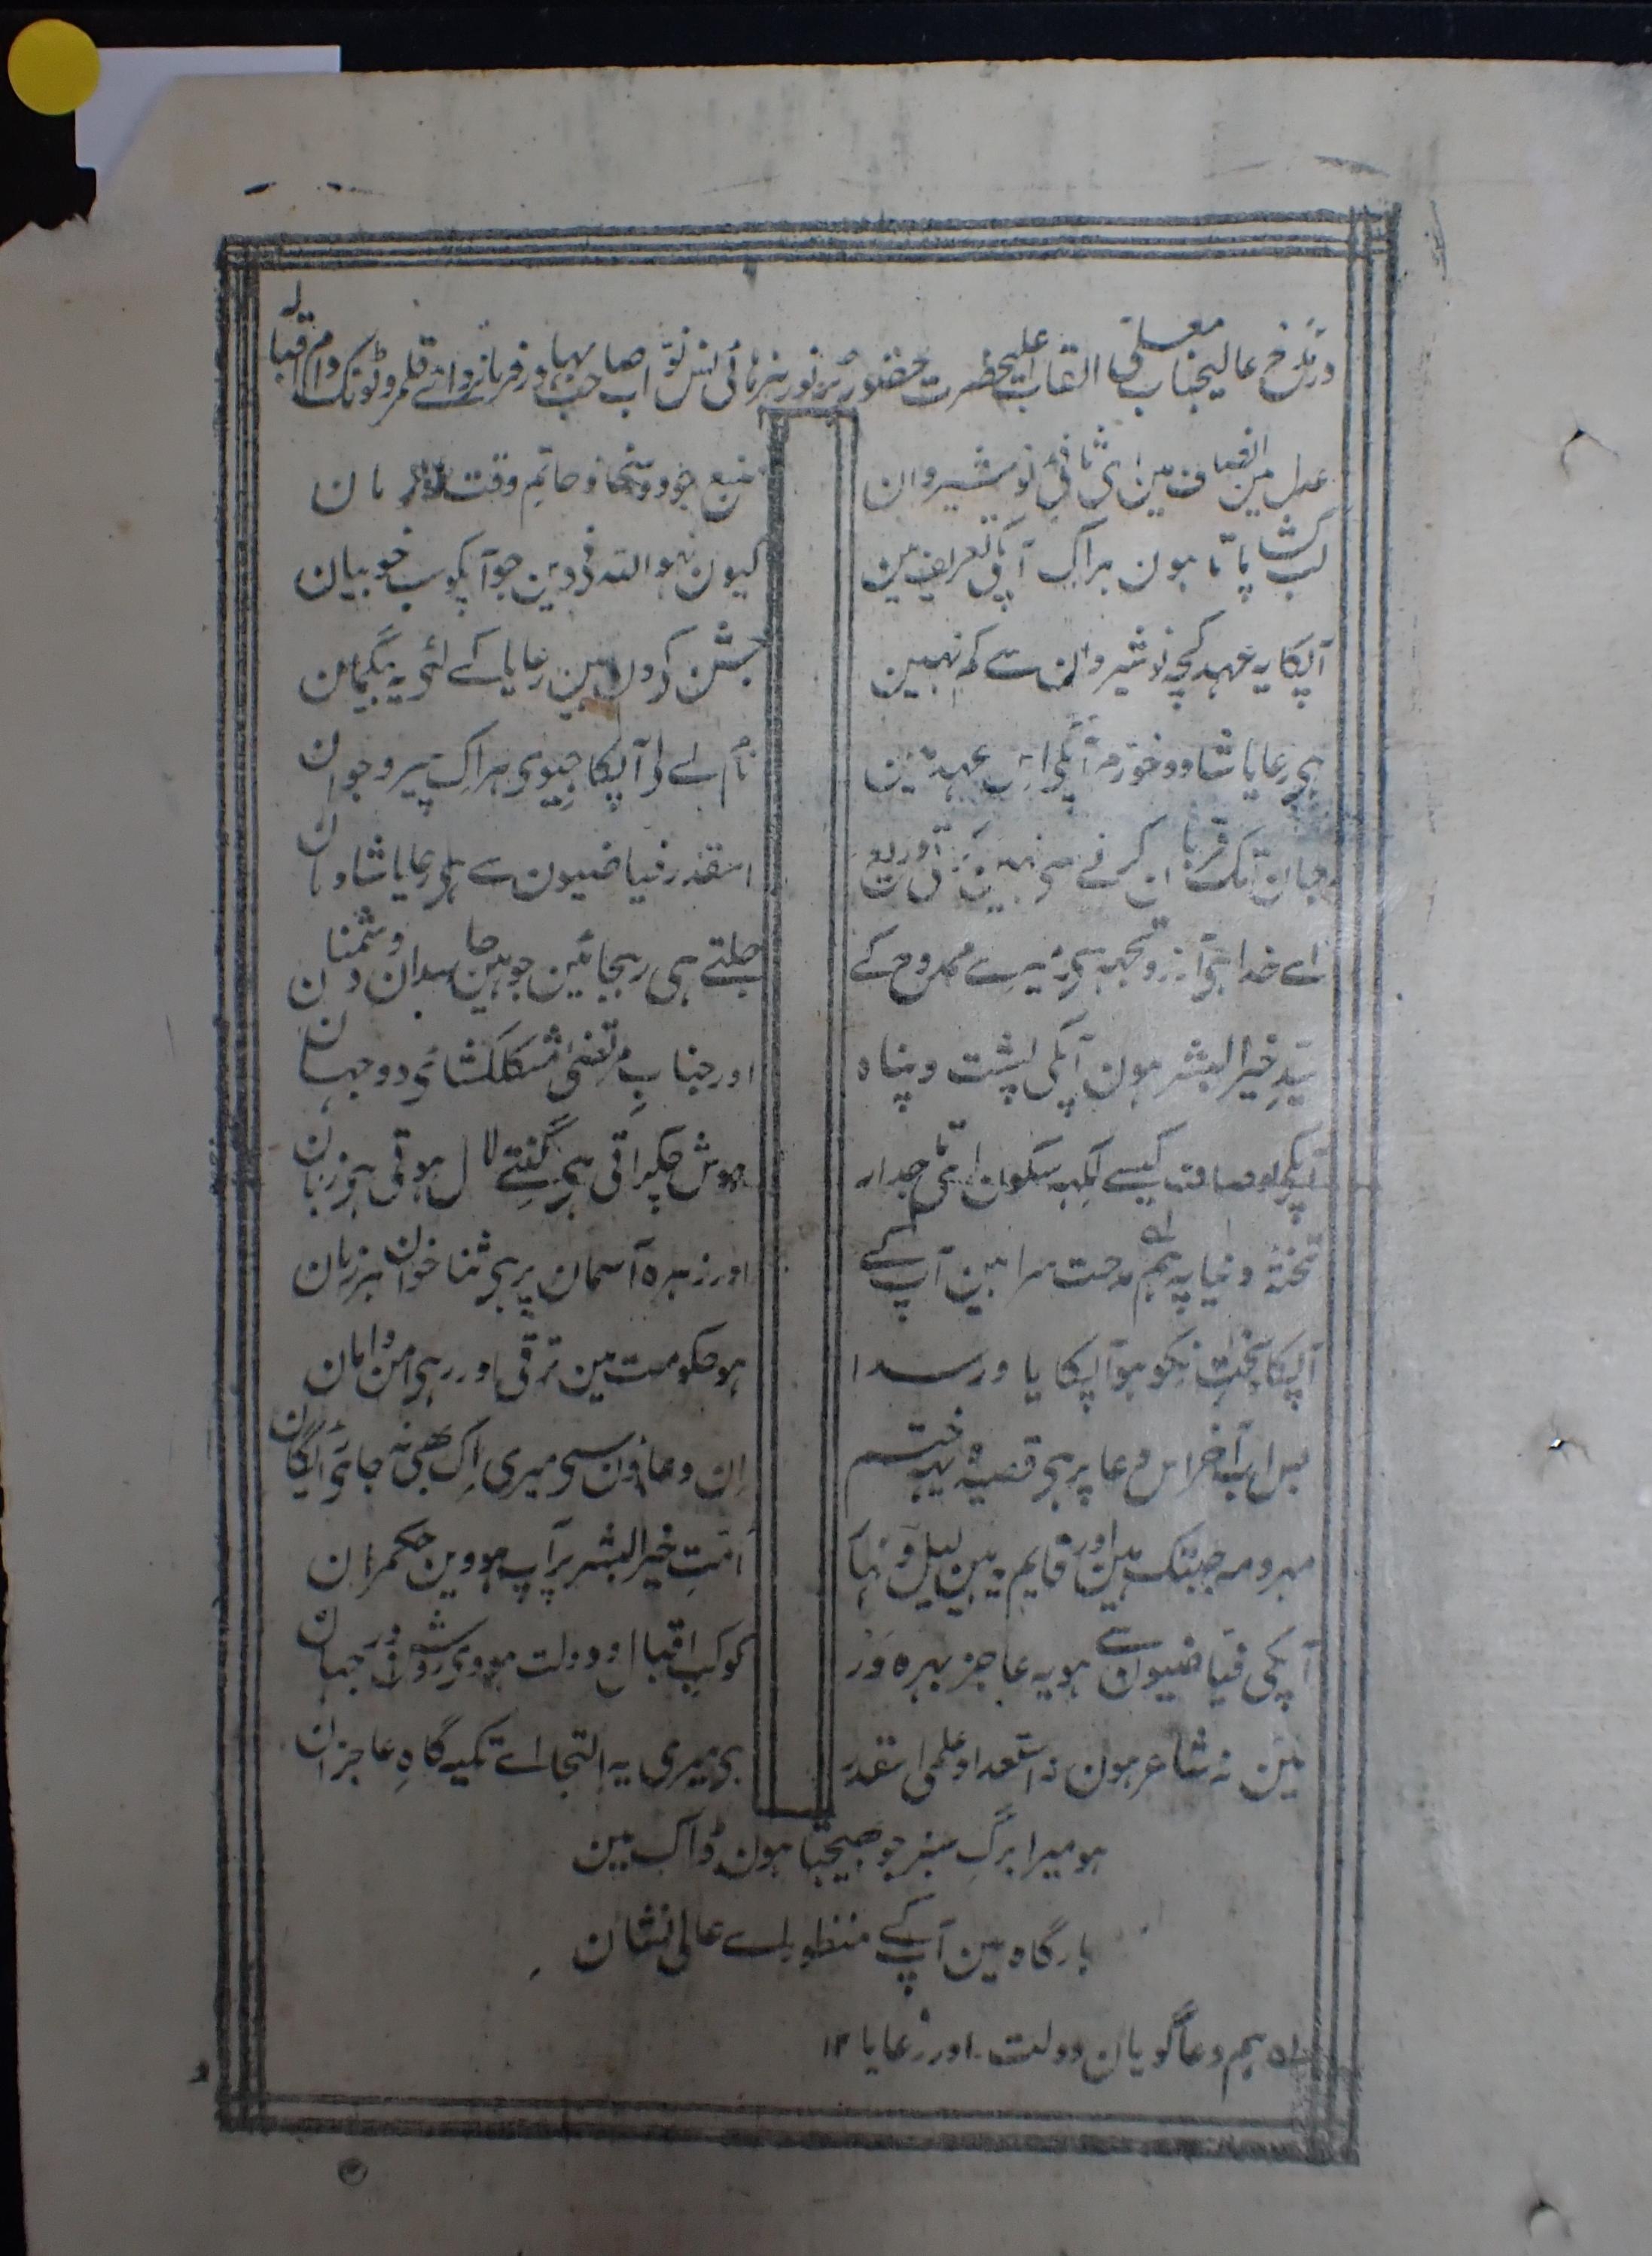 در مدح عالیجناب معلی القاب اعلیحضرت حضور پر نور ہز ہائی نس نواب صاحب بہادر فرمانروائے قلمرو ٹونک دام اقبالہ
عدل مین انصاف مین ای ثانیٔ نوشیروان منبع جود و سخا و حاتم وقت
لب کشا پاتا ہون ہر اک آپکی تعریف مین کیون نہو اللہ نے دین جو آپکو سب خوبیان
آپکا یہ عہد کچہ نوشیروان سے کم نہین جشن کر دون مین رعایا کے لئی یہ بیگمان
ہی رعایا شاد و خرم آپکی اس عہد مین نام لے لے آپکا جیوی ہر اک پیر و جوان
جان تک قربان کرنے سی نہین آتی دریغ اسقدر فیاضیون سے ہی رعایا شادمان
اے خدا ہی آرزو تجہہ سی میرے ممدوح کے جلتے ہی رہجائین جو ہین حاسدان و دشمنان
سید خیر البشر ہون آپکی پشت و پناہ اور جناب مرتضیٰ مشکلکشای دو جہان
آپکی اوصاف کیسے لکہہ سکون ای تاجدار ہوش چکراتی ہی گنتے لال ہوتی ہی زبان
تختۂ دنیا پہ ہم ۵۱ مدحت سرا ہین آپ کے اور زہرہ آسمان پر ہی ثنا خوان ہر زمان
آپکا بخت نکو ہو آپکا یاور سدا ہو حکومت مین ترقی اور رہی امن و امان
بس اب آخر اس دعا پر ہی قصیدہ یہہ ختم ان دعاؤن سی میری اک بھی نہ جائی رایگان
مہر و مہ جبتک ہین اور قایم ہین لیل و نہار امت خیر البشر پر آپ ہووین حکمران
آپکی فیاضیون سے ہو یہ عاجز بہرہ ور کوکب اقبال و دولت ہووی روشن در جہان
مین نہ شاعر ہون نہ استعداد علمی اسقدر ہی میری یہ التجا اے تکیہ گاہ عاجزان
ہو میرا برگ سبز جو بھیجتا ہون ڈاک مین
بارگاہ مین آپ کے منظور اے عالی نشان
۵۱ ہم دعا گویان دولت۔ اور رعایا ۱۲